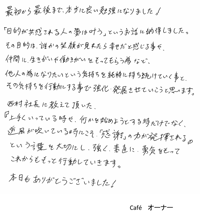 最初から最後まで、本当に良い勉強になりました!
「目的が共感される人の夢は叶う」というお話に納得しました。
その目的は、誰かの笑顔が見れたら幸せだと感じる事や、
仲間に生きがいや働きがいをもってもらう場など、
他人の為になりたいという気持ちを純粋に持ち続けていく事と、
その気持ちを行動にする事で強化・発展させていこうと思います。
西村社長に教えて頂いた、
『上手くいっている時や、何かを始めようとする時だけでなく、
逆風が吹いている時にこそ「感謝」の力が発揮される』
という言葉を大切にし、強く、素直に、勇気をもって
これからももって行動していきます。
本日もありがとうございました!
Café オーナー